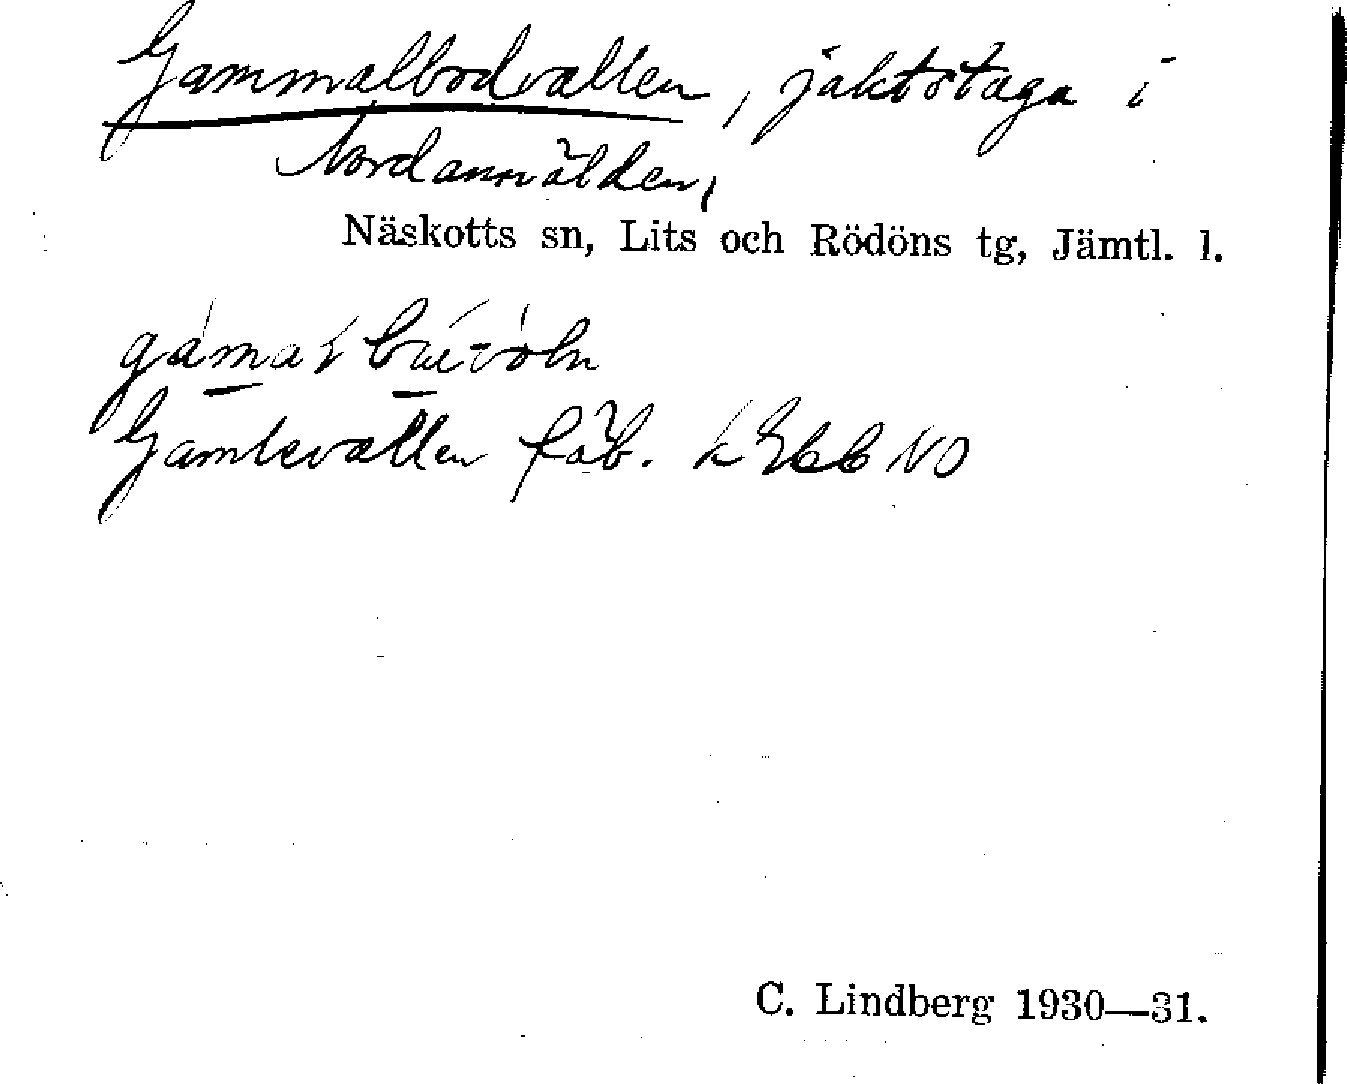 Gammalbodvallen, jaktstuga i
Nordannälden,
Näskotts sn, Lits och Rödöns tg, Jämtl. l.
Gamlevallen fäb. k Ebl NO
C. Lindberg 1930—31.